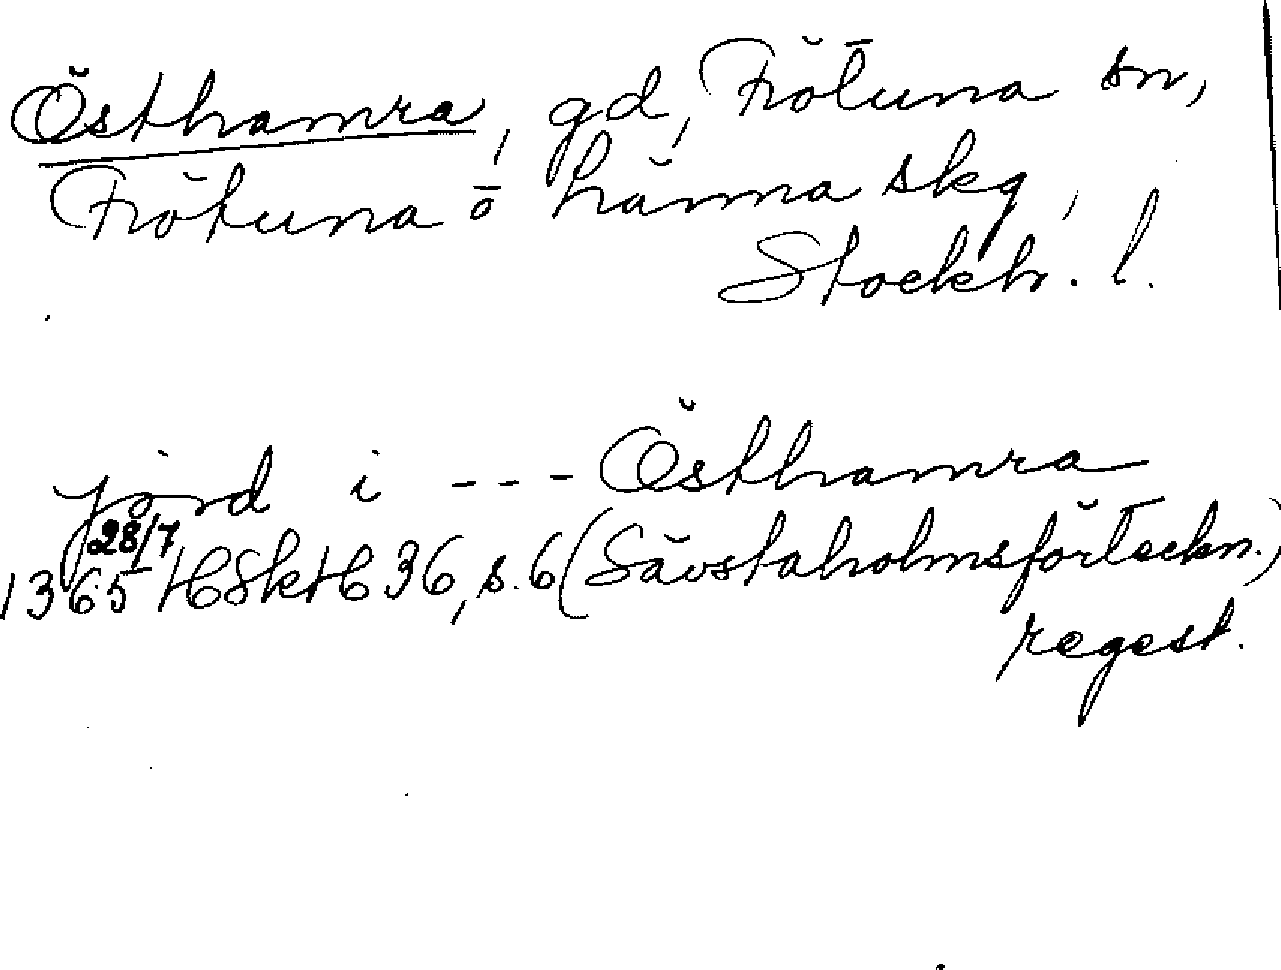 Östhamra, gd, Frötuna sn,
Frötuna o Länna skg,
Stockh. l.
jord i --- Östhamra
1365 28/7 HSkH 36, s. 6 (Sävstaholmsförteckn.,
regest.